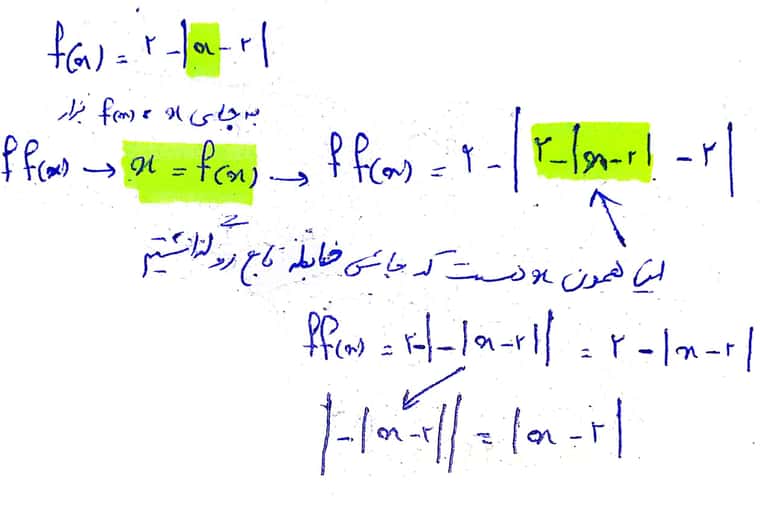 f(x) = ۲ - |x - ۲|
به جای x ، f(x) بزار
f f(x) → x = f(x) → f f(x) = ۲ - |۲ - |x - ۲| - ۲|
این همون x است که جاش ضابطه تابع رو گذاشتیم
f f(x) = ۲ - |-|x - ۲|| = ۲ - |x - ۲|
|-|x - ۲|| = |x - ۲|